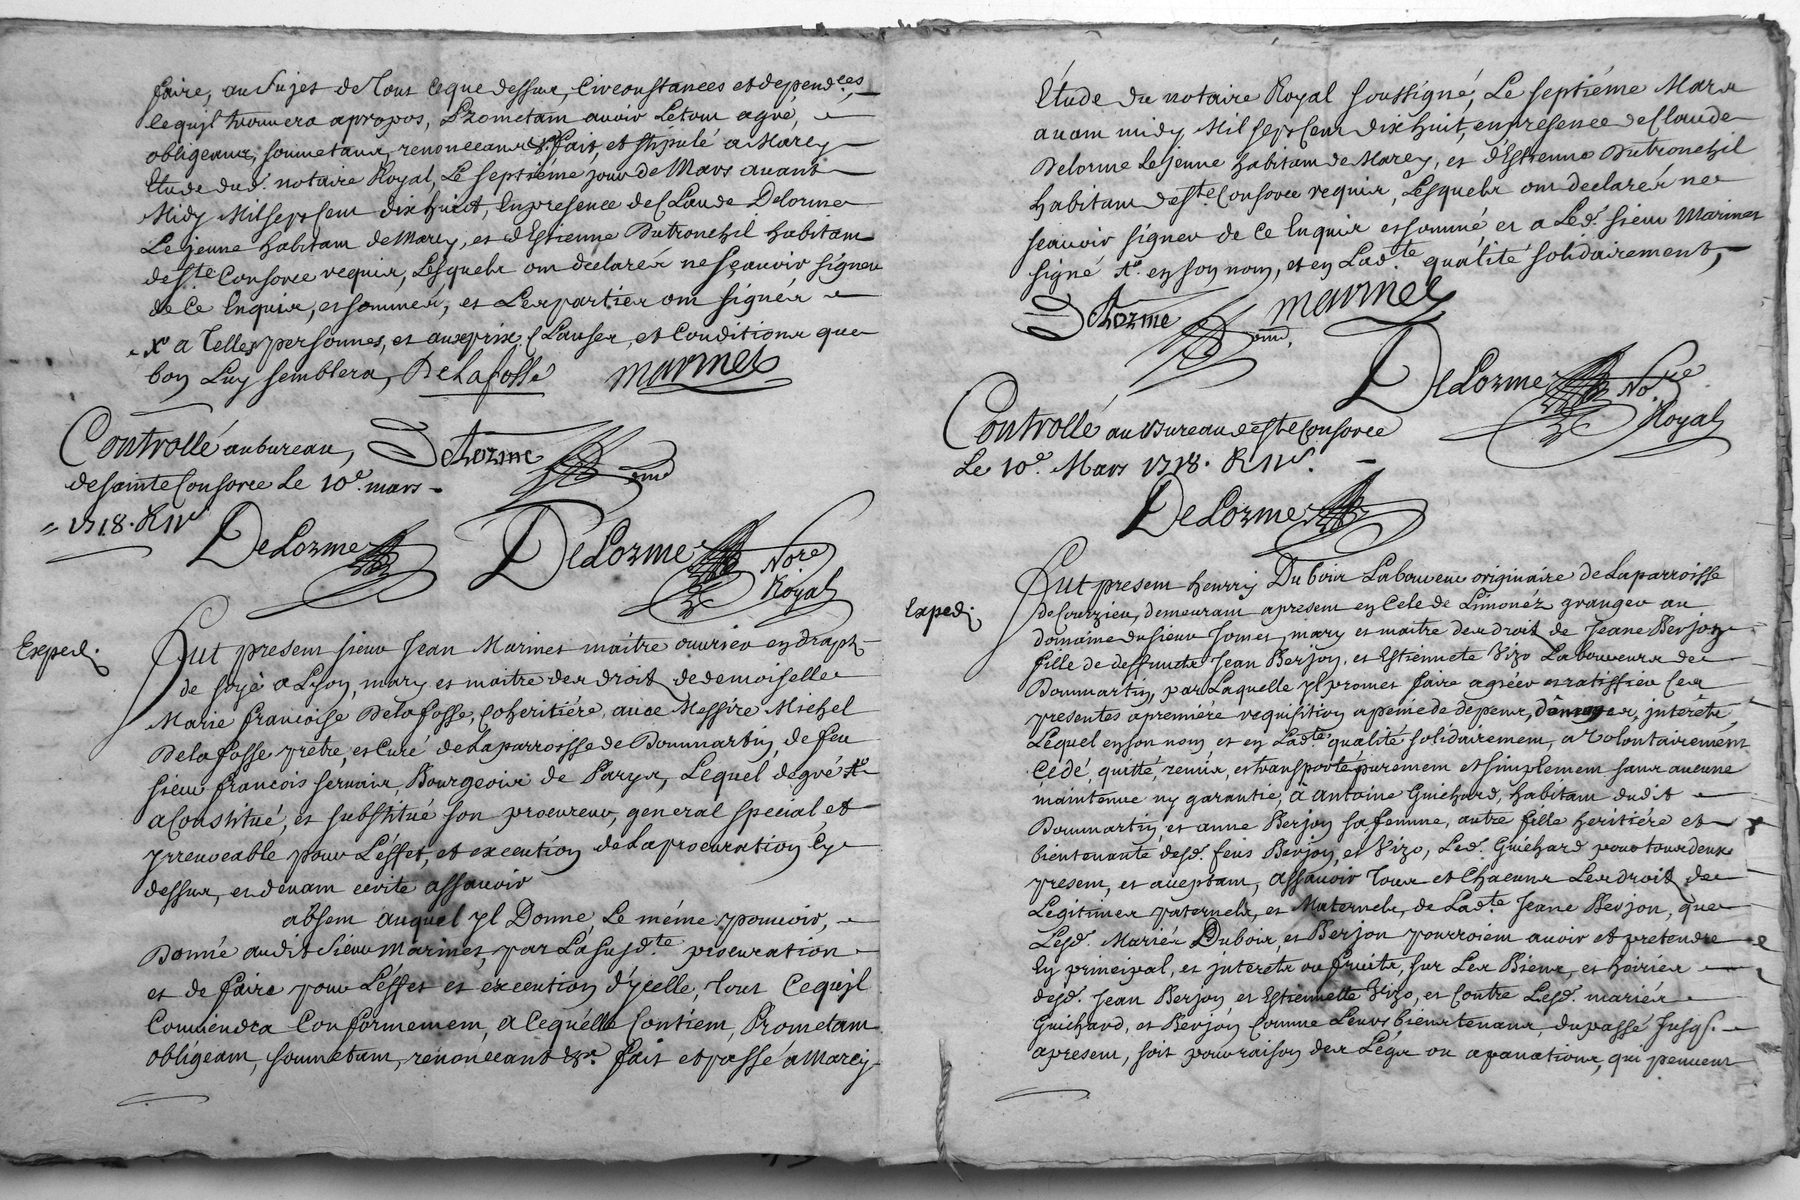 faire, au sujet de Tout ceque dessus, Circonstances et depend.ces,
cequjl trouvera apropos, Prometant avoir Letout agréé,
obligeant, soumetant, renonceant &.ª fait, et stipulé a Marcy
Etude dud. notaire Royal, Le septiéme jour de Mars avant
Midy Mil sept cent dix huict, En presence de Claude Delorme
Le jeune habitant de Marcy, et d'Estienne Dutronchil habitant
de Ste Consorce requis, Lesquels ont déclarés ne sçavoir signer
de ce Enquis, et sommés, et Les parties ont signés
a Telles personnes, et aux prix, Clauses, et Conditions que
bon Luy semblera, Delafosse marmet
Controllé au bureau, Delorme
de sainte Consorce Le 10e. mars
1718. R
DeLorme DeLorme No.re
Royal
Exped.
Fut present sieur Jean Marmet maitre ouvrier en draps
de soye a Lyon, mary et maitre des droits de demoiselle
Marie francoise Delafosse, Coheritiére, avec Messire Michel
Delafosse prêtre, et Curé de Laparroisse de Dommartin, de feu
sieur francois servais, Bourgeois de Parys, Lequel degré
aConstitué, et substitué son procureur, general special, et
yrrevocable pour L'effet, et execution de Laprocuration Cy
dessus, et devant ecrite assavoir
absent auquel yl Donne, Le méme pouvoir,
Donné audit sieur Marmet, par La susd.te procuration
et de faire pour L'effet et execution d'ycelle, Tout Cequjl
Conviendra Conformement, a Cequélle Contient, Prometant
obligeant, soumetant, renonceant &.ª fait et passé a Marcy
Étude du notaire Royal soussigné, Le septiéme Mars
avant midy Mil sept Cent dix huit, en présence de Claude
Delorme Le jeune habitant de Marcy, et d'Estienne Dutronchil
habitant de Ste. Consorce requis, Lesquels ont declarés ne
scavoir signer de ce Enquis et sommé et a Led. sieur Marmet
signé en son nom, et en Lad.te quálité solidairement,
Delorme marmet
DeLorme No.re
Royal
Controllé au Bureau de Ste Consorce
Le 10e. Mars 1718. R
DeLorme
Exped.
Fut present henry Dubois Laboureur originaire de Laparroisse
de Courzieu, demeurant apresent en Cele de Limonéz granger au
domaine du sieur mary et maitre des droits de Jeane Berjon
fille de deffuncts Jean Berjon, et Estiennete Vizo Laboureurs de
Dommartin, par Laquelle yl promet faire agréer et ratiffier Ces
presentes a premiére requisition a peine de depens, jnteréts,
Lequel en son nom et en Lad.te qualité solidairement, a volontairement
Cédé, quitté, remis, et transporté purement et simplement sans aucune
maintenue ny garantie, à Antoine Guichard, habitant dudit
Dommartin, et anne Berjon sa femme, autre fille heritiére et
bientenante desd. feus Berjon, et Vizo, Led. Guichard pour tous deux
present, et aceptant, assavoir Tous et Chacuns Les droits de
Legitimes paternels, et Maternels, de Lad.te Jeane Berjon, que
Lesd. Mariés Dubois, et Berjon pourroient avoir et pretendre
En principal, et jnterets ou fruits, sur Les Biens, et hoiries
desd. Jean Berjon et Estiennette Vizo, et Contre Lesd. mariés
Guichard, et Berjon Comme Leurs bientenans, du passé Jusqs.
apresent, soit pour raison des Légs ou apanations, qui peuvent